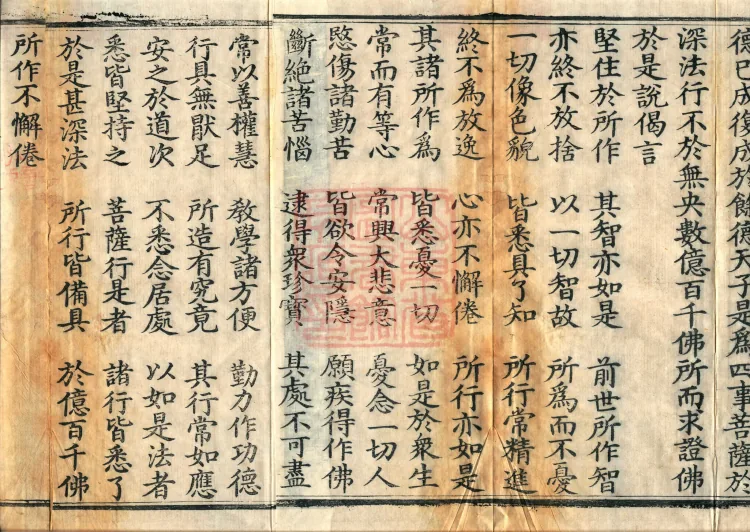 德已成復成於餘德天子是爲四事菩薩於
深法行不於無央數億百千佛所而求證佛
於是說偈言
堅住於所作 其智亦如是 前世所作智
亦終不放捨 以一切智故 所爲而不憂
一切像色貌 皆悉具了知 所行常精進
終不爲放逸 心亦不懈倦 所行亦如是
其諸所作爲 皆悉憂一切 如是於衆生
常而有等心 常興大悲意 憂念一切人
愍傷諸勤苦 皆欲令安隱 願疾得作佛
斷絕諸苦惱 逮得衆珍寶 其處不可盡
常以善權慧 教學諸方便 勤力作功德
行具無厭足 所造有究竟 其行常如應
安之於道次 不悉念居處 以如是法者
悉皆堅持之 菩薩行是者 諸行皆悉了
於是甚深法 所行皆備具 於億百千佛
所作不懈倦